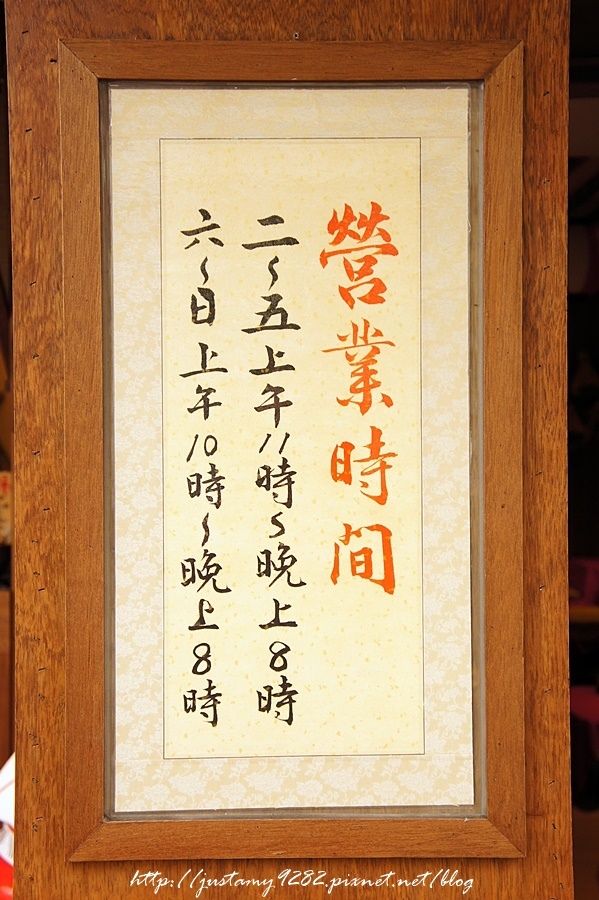 營業時間
二~五上午11時~晚上8時
六~日上午10時~晚上8時
http://justamy9282.pixnet.net/blog